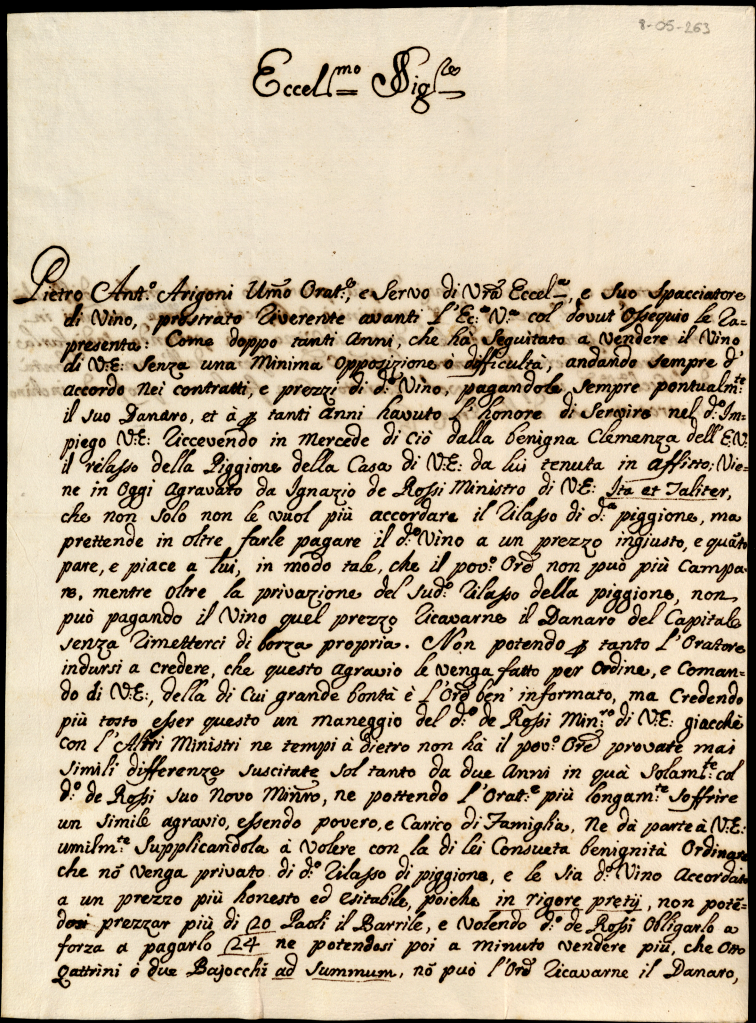 8-05-263
Eccel.mo Sig.re
Pietro Ant.o Arigoni Umo Orat.e, e Servo di Vra Eccel.a, e suo spacciatore
di Vino, prostrato riverente avanti l'Ec.a V.a col dovut'Ossequio le ra-
presenta: Come doppo tanti Anni, che hà seguitato a vendere il Vino
di V:E: senza una minima opposizione ò difficultà, andando sempre d'
accordo nei contratti, e prezzi di d.o Vino, pagandole sempre pontualm.te
il suo Danaro, et à p tanti Anni havuto l'honore di servire nel d.o Im-
piego V:E: riccevendo in mercede di ciò dalla benigna Clemenza dell'E.V.
il rilasso della Piggione della Casa di V:E: da lui tenuta in affitto; Vie-
ne in oggi agravato da Ignazio de Rossi Ministro di V:E: Ita et Taliter,
che non solo non le vuol più accordare il rilasso di d.a piggione, ma
prettende in oltre farle pagare il d.o Vino a un prezzo ingiusto, e quãto
pare, e piace a lui, in modo tale, che il pov.o Ore non può più campa-
re, mentre oltre la privazione del sud.o rilasso della piggione, non
può pagando il Vino quel prezzo ricavarne il Danaro del Capitale
senza rimetterci di borza propria. Non potendo p tanto l'Oratore
indursi a credere, che questo agravio le venga fatto per ordine, e coman-
do di V:E:, della di cui grande bontà è l'Ore ben' informato, ma credendo
più tosto esser questo un maneggio del d.o de Rossi Min.ro di V:E: giacchè
con l'Altri Ministri ne tempi à dietro non hà il pov.o Ore provate mai
simili differenze suscitate sol tanto da due Anni in quà solam.te col
d.o de Rossi suo novo Minro, ne pottendo l'Orat.e più longam.te soffrire
un simile agravio, essendo povero, e carico di Famiglia, ne dà parte à V:E:
umilm.te supplicandola à volere con la di lei consueta benignità ordinare
che nõ venga privato di d.o rilasso di piggione, e le sia d.o Vino accordato
a un prezzo più honesto ed esitabile, poiche in rigore pretij, non potẽ-
dosi prezzar più di 20 Paoli il Barrile, e volendo d.o de Rossi obligarlo a
forza a pagarlo 24 ne potendosi poi a minuto vendere più, che otto
qattrini ò due Bajocchi ad summum, nõ può l'Ore ricavarne il Danaro,